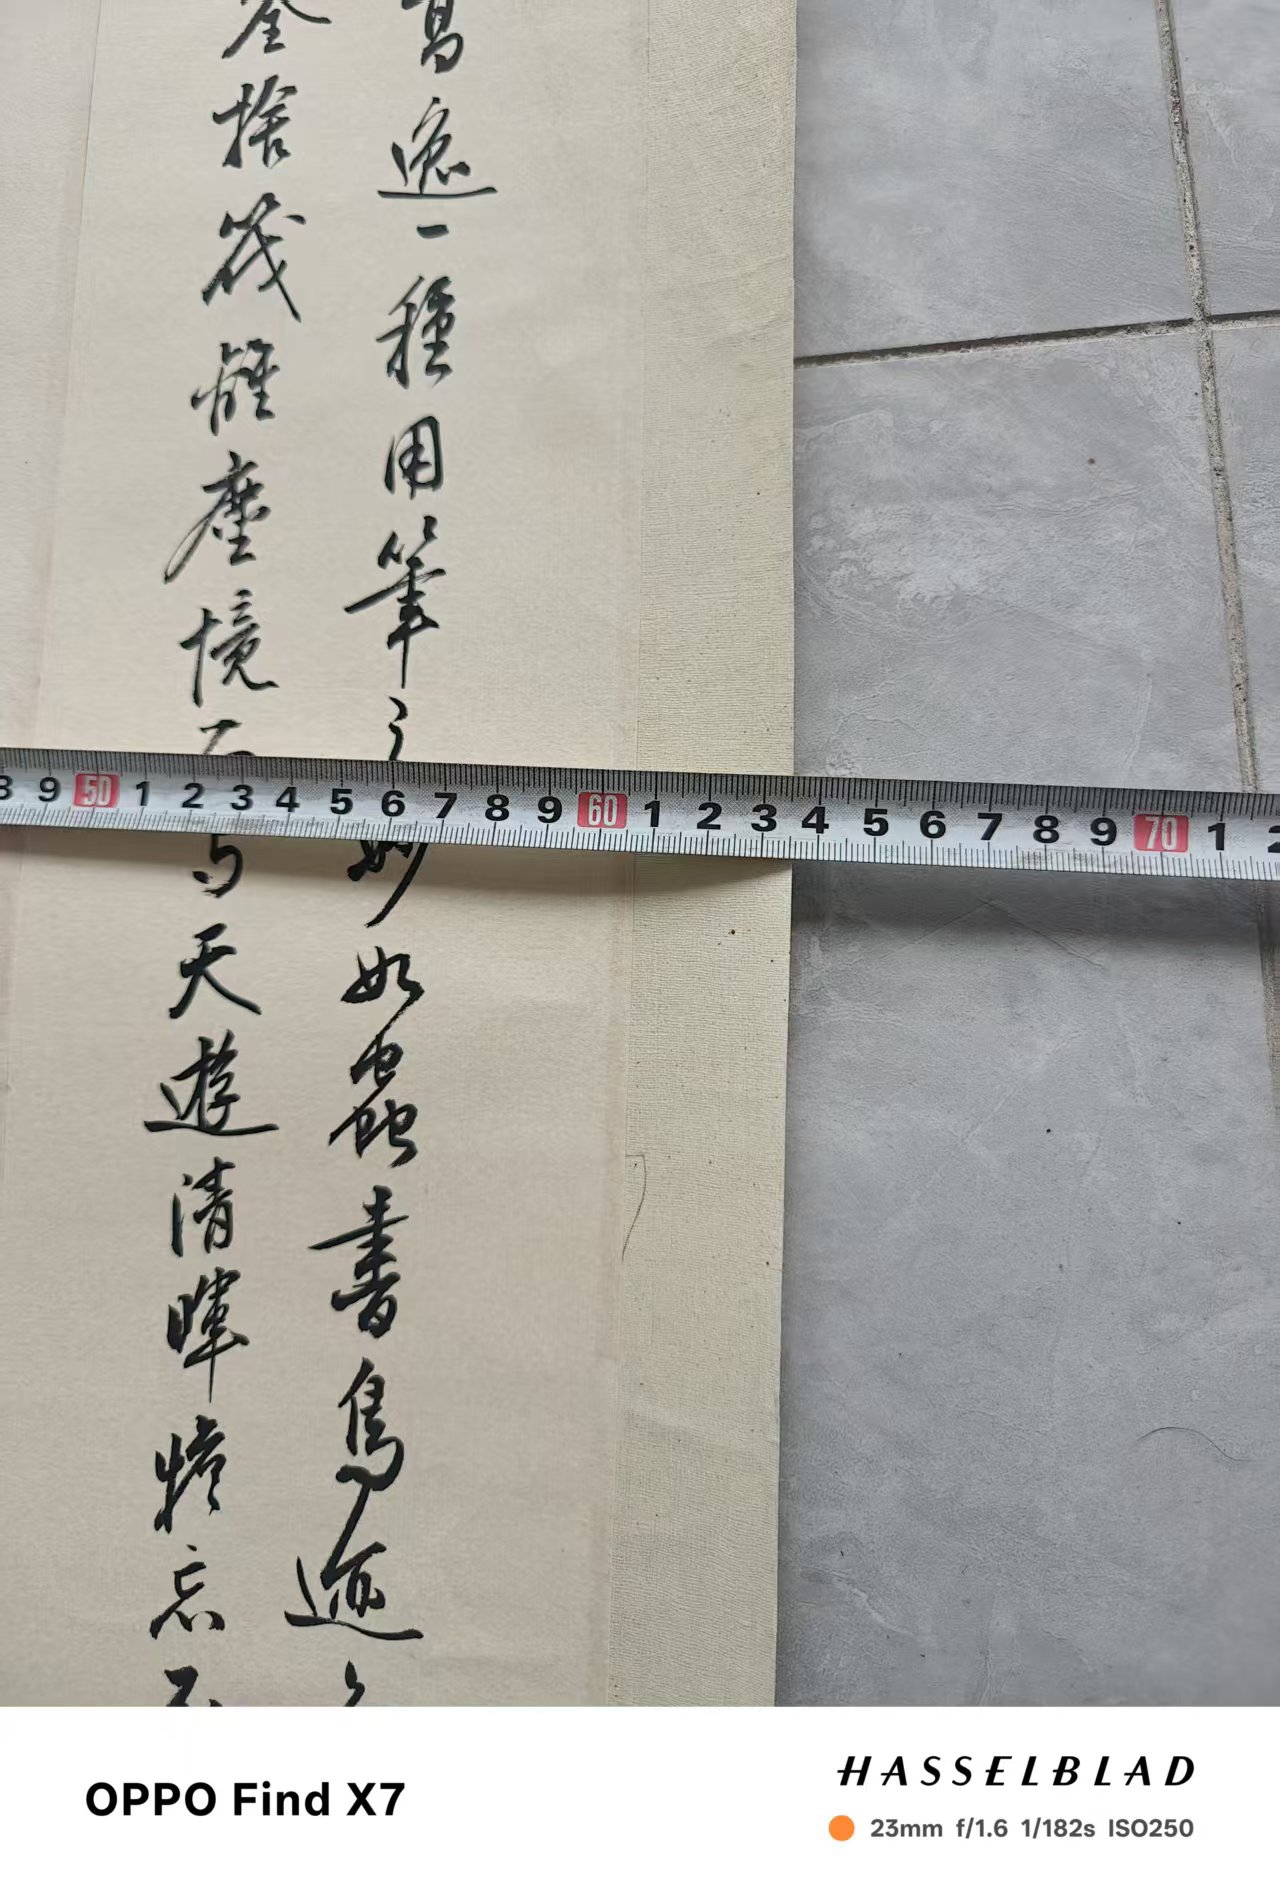 逸一種用筆之妙如蟲書鳥迹
捨筏離塵境
与天遊清暉憺忘
8 9 50 1 2 3 4 5 6 7 8 9 60 1 2 3 4 5 6 7 8 9 70 1 2
OPPO Find X7
HASSELBLAD
23mm f/1.6 1/182s ISO250